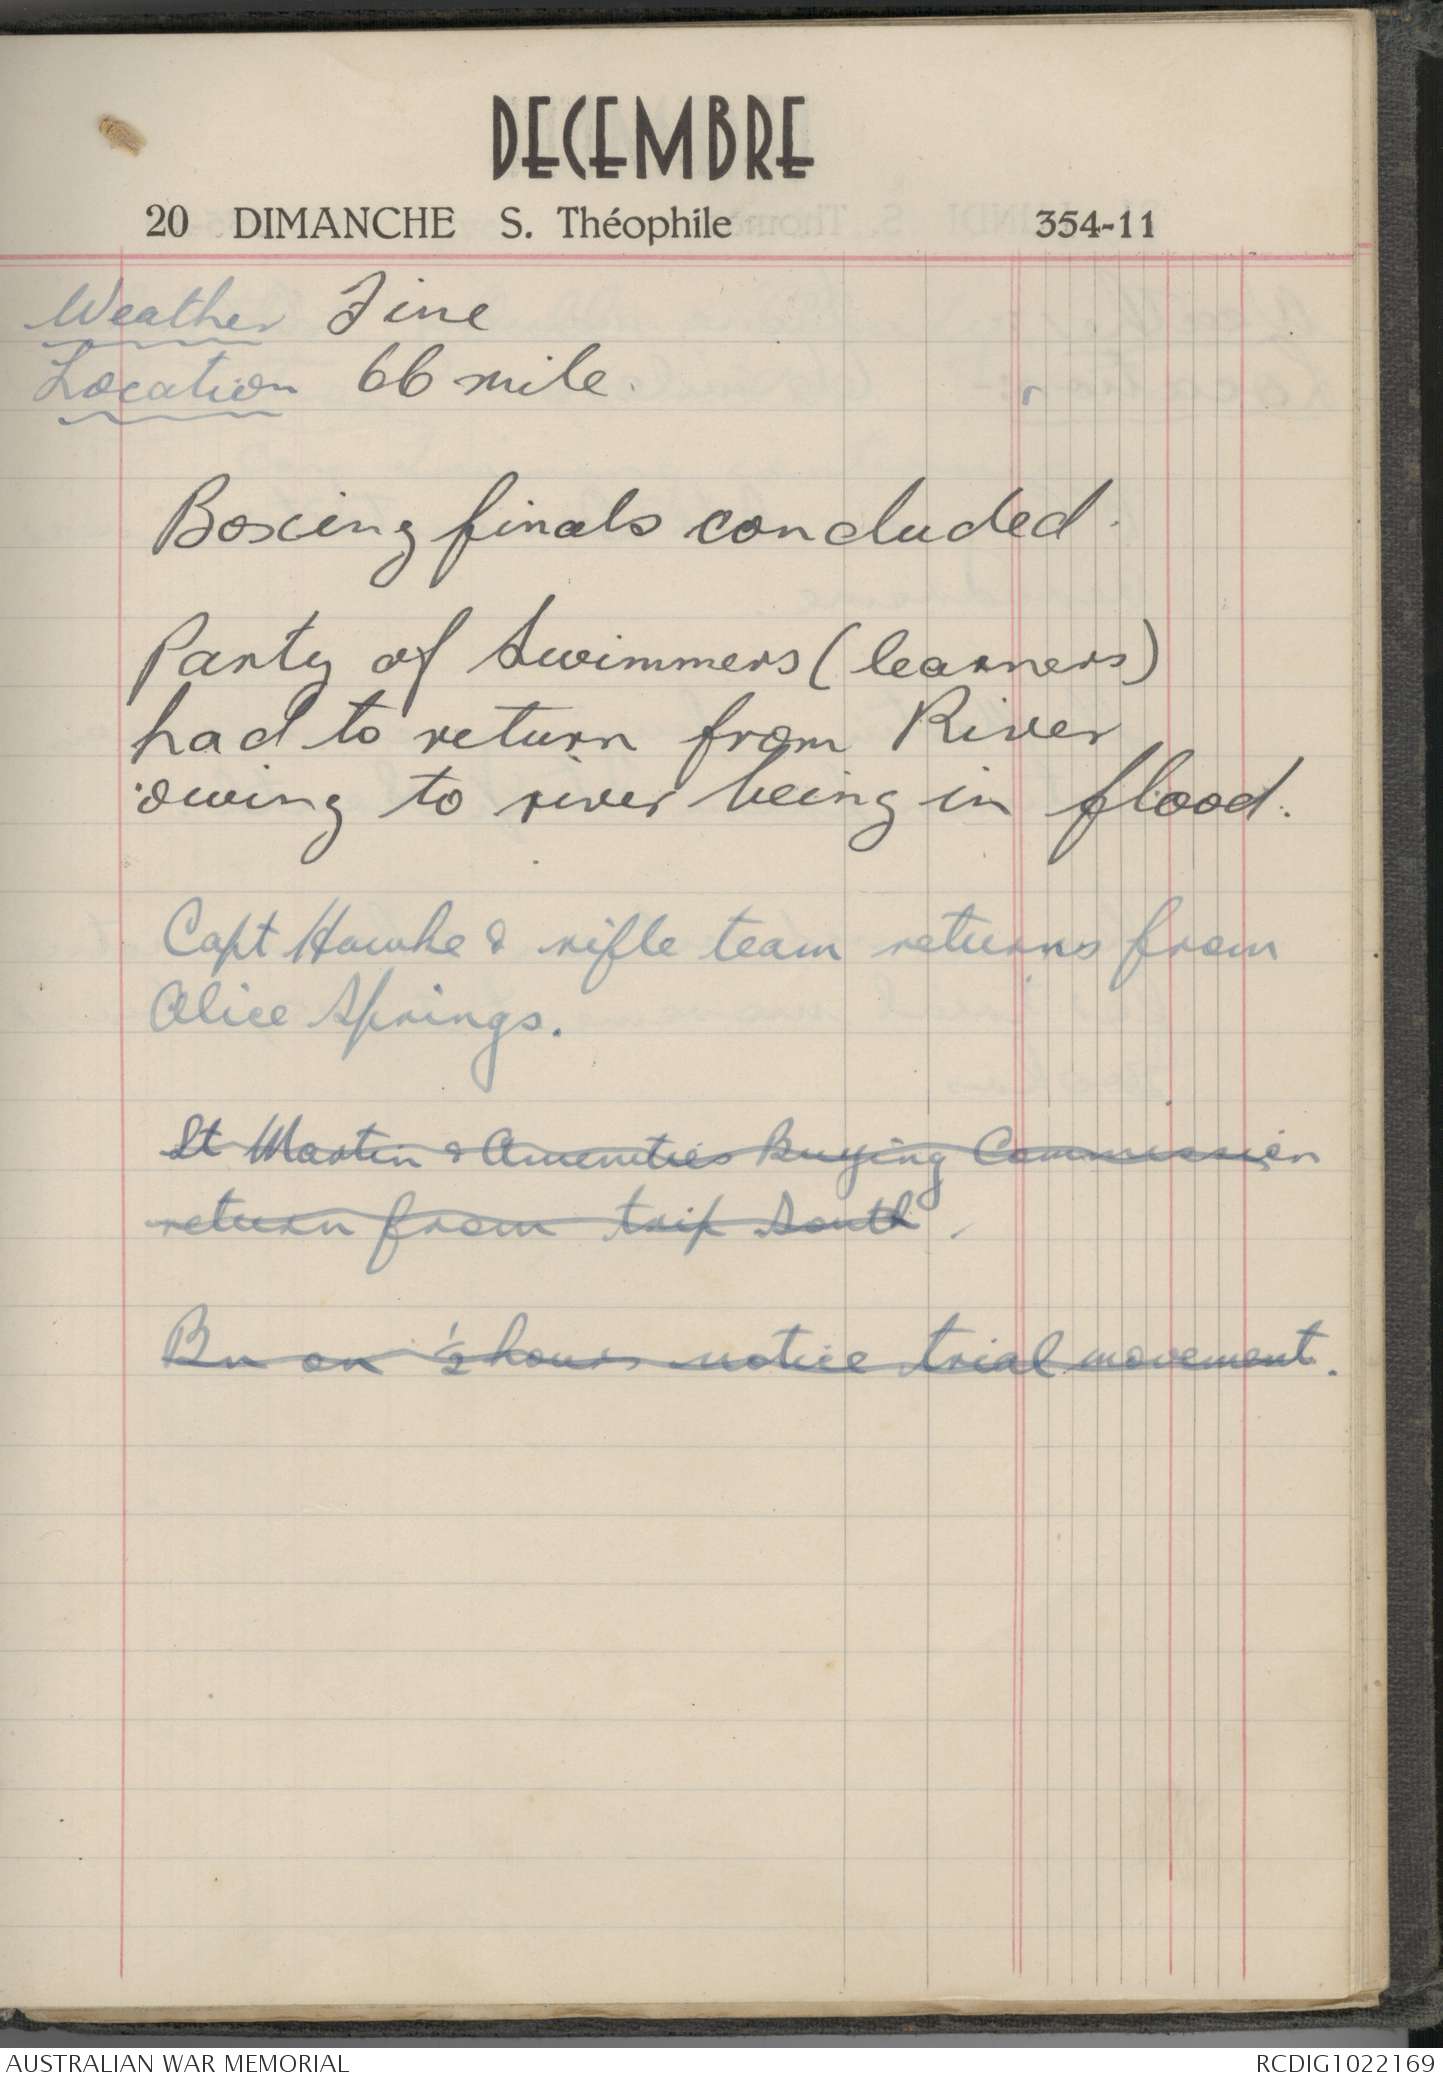 DECEMBRE
20 DIMANCHE S. Théophile 354-11
Weather Fine
Location 66 mile.
Boxing finals concluded.
Party of Swimmers (learners)
had to return from River
owing to river being in flood.
Capt Hawke & rifle team returns from
Alice Springs.
Lt Martin & Amenities Buying Commission
return from trip South.
Bn on ½ hours notice trial movement.
AUSTRALIAN WAR MEMORIAL RCDIG1022169